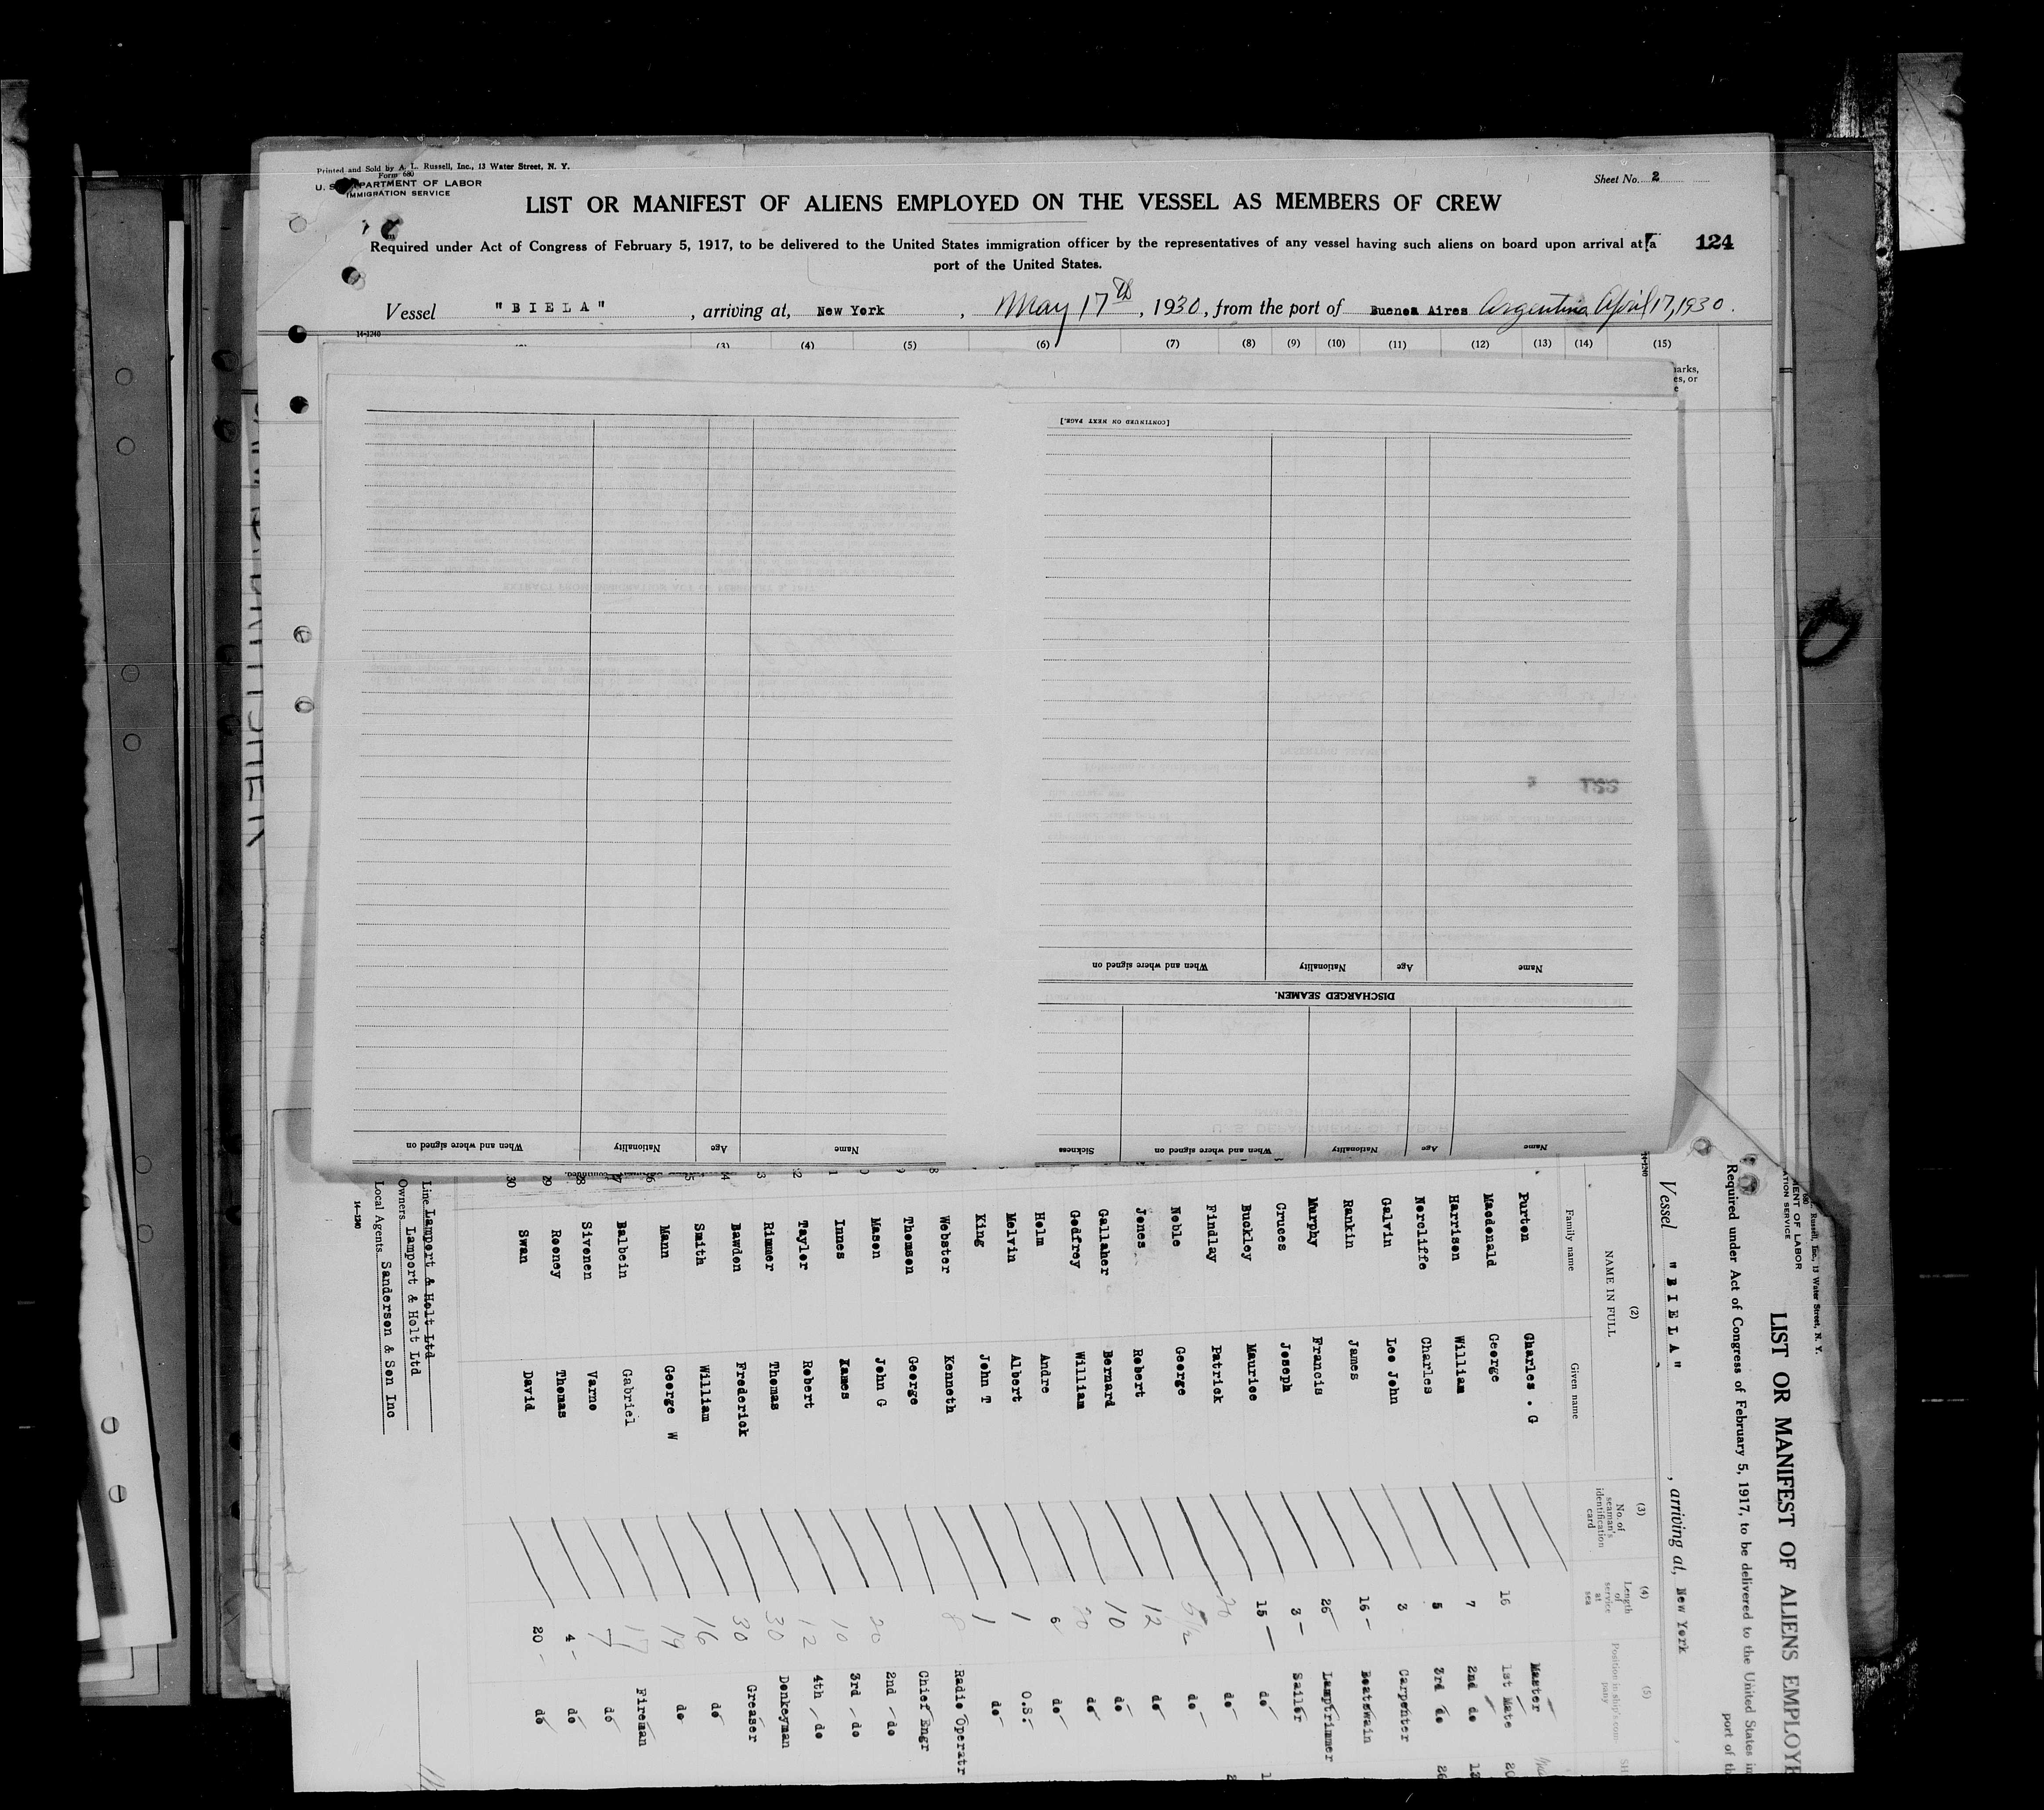 Printed and Sold by A. L. Russell, Inc., 13 Water Street, N. Y.
Form 680
U. S. DEPARTMENT OF LABOR
IMMIGRATION SERVICE
Sheet No. 2
LIST OR MANIFEST OF ALIENS EMPLOYED ON THE VESSEL AS MEMBERS OF CREW
Required under Act of Congress of February 5, 1917, to be delivered to the United States immigration officer by the representatives of any vessel having such aliens on board upon arrival at a
port of the United States.
124
Vessel "BIELA", arriving at, New York, May 17th, 1930, from the port of Buenos Aires Argentina April 17, 1930.
14-1240
(3) (4) (5) (6) (7) (8) (9) (10) (11) (12) (13) (14) (15)
[CONTINUED ON NEXT PAGE.]
When and where signed on Nationality Age Name
DISCHARGED SEAMEN.
Sickness When and where signed on Nationality Age Name
When and where signed on Nationality Age Name
Russell, Inc., 13 Water Street, N. Y.
MENT OF LABOR
ATION SERVICE
LIST OR MANIFEST OF ALIENS EMPLOYE
Required under Act of Congress of February 5, 1917, to be delivered to the United States im
port of th
Vessel "BIELA", arriving at, New York
14-1240
(2) (3) (4) (5)
NAME IN FULL
Family name Given name No. of seaman's identification card Length of service at sea Position in ship's company
Purton Charles . G Master
Macdonald George 16 1st Mate 20
Harrison William 7 2nd do 12
Norcliffe Charles 5 3rd do 26
Galvin Leo John 3 Carpenter
Rankin James 16 - Boatswain
Murphy Francis 25 Lamptrimmer
Cruces Joseph 3 - Sailor
Buckley Maurice 15 - do
Findlay Patrick 20 do
Noble George 5 1/2 do
Jones Robert 12 do
Gallaher Bernard 10 do
Godfrey William 20 do
Holm Andre 6 do
Melvin Albert 1 O.S.
King John T 1 do
Webster Kenneth 8 Radio Operatr
Thomson George Chief Engr
Mason John G 20 2nd do
Innes James 10 3rd do
Taylor Robert 12 4th do
Rimmer Thomas 30 Donkeyman
Bawden Frederick 30 Greaser
Smith William 16 do
Mann George W 19 do
Balbein Gabriel 17 Fireman
28 Sivonen Varno 7 do
29 Rooney Thomas 4 - do
30 Swan David 20 - do
Line Lamport & Holt Ltd
Owners Lamport & Holt Ltd
Local Agents Sanderson & Son Inc
14-1240